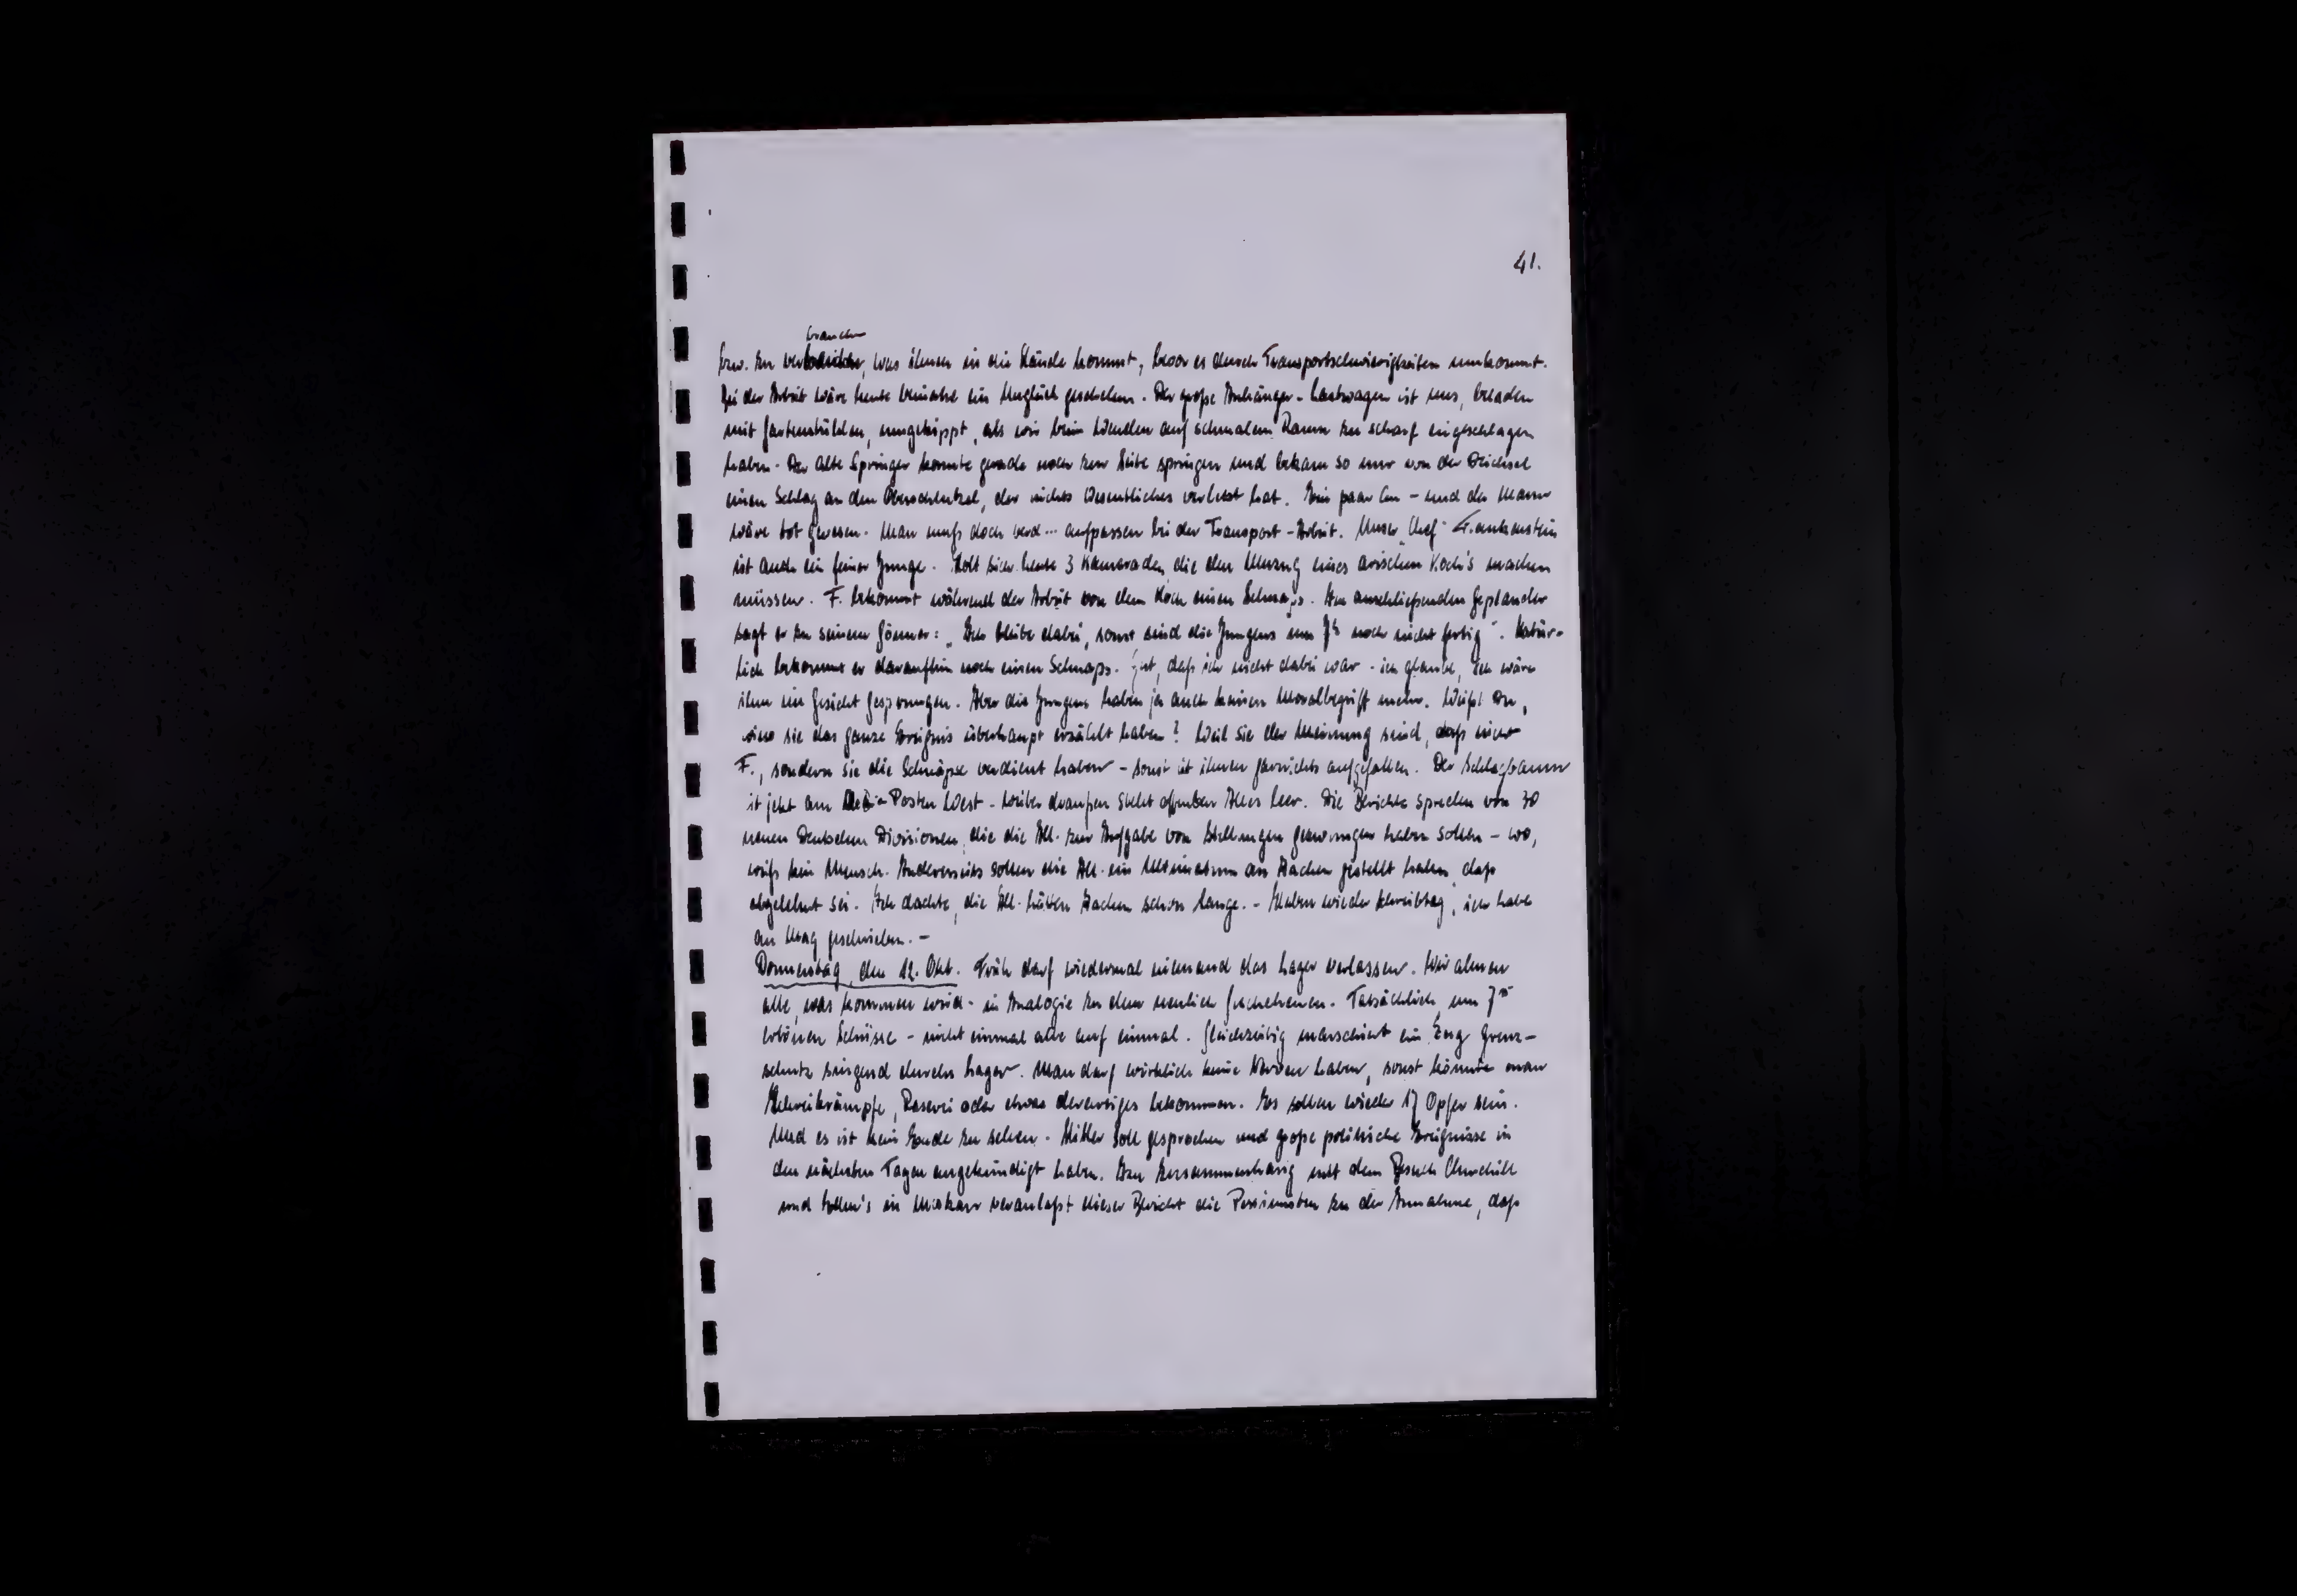 41.
brauchen
bzw. zu ver, was ihnen in die Hände kommt, bevor es durch Transportschwierigkeiten umkommt.
Bei der Arbeit wäre heute beinahe ein Unglück geschehen. Der große Anhänger-Lastwagen ist uns, beladen
mit Gartenstühlen, umgekippt, als wir beim Wenden auf schmalem Raum zu scharf eingeschlagen
haben. Der alte Springer konnte gerade noch zur Seite springen und bekam so nur von der Deichsel
einen Schlag an den Oberschenkel, der nichts Wesentliches verletzt hat. Ein paar cm - und der Mann
wäre tot gewesen. Man muß doch verd... aufpassen bei der Transport-Arbeit. Unser "Chef" Frankenstein
ist auch ein feiner Junge. Holt sich heute 3 Kameraden, die den Umzug eines arischen Koch's machen
müssen. F. bekommt während der Arbeit von dem Koch einen Schnaps. Im anschließenden Geplauder
sagt er zu seinem Gönner: „Ich bleibe dabei, sonst sind die Jungens um 7h noch nicht fertig". Natür-
lich bekommt er daraufhin noch einen Schnaps. Gut, daß ich nicht dabei war - ich glaube, ich wäre
ihm ins Gesicht gesprungen. Aber die Jungens haben ja auch keinen Moralbegriff mehr. Weißt Du,
sie das ganze Ereignis überhaupt erzählt haben? Weil sie der Meinung sind, daß nicht
F., sondern sie die Schnäpse verdient haben - sonst ist ihnen garnichts aufgefallen. Der Schlagbaum
ist jetzt am Posten West - weiter draußen steht offenbar Alles leer. Die Berichte sprechen von 30
neuen Deutschen Divisionen, die die All. zur Aufgabe von Stellungen gezwungen haben sollen - wo,
weiß kein Mensch. Andererseits sollen die All. ein Ultimatum an Aachen gestellt haben, daß
abgelehnt sei. Ich dachte, die All. hätten Aachen schon lange. - Haben wieder Schreibtag, ich habe
an geschrieben. -
Donnerstag, den 12. Okt. Früh darf wiedermal niemand das Lager verlassen. Wir ahnen
alle, was kommen wird - in Analogie zu dem neulich Geschehenen. Tatsächlich, um
ertönen Schüsse - nicht einmal alle auf einmal. Gleichzeitig marschiert ein Zug Grenz-
schutz singend durchs Lager. Man darf wirklich keine Nerven haben, sonst könnte man
Schreikrämpfe, Raserei oder etwas derartiges bekommen. Es sollen wieder 17 Opfer sein.
Und es ist kein Ende zu sehen. Hitler soll gesprochen und große politische Ereignisse in
den nächsten Tagen angekündigt haben. Im Zusammenhang mit dem Besuch Churchill
und Eden's in Moskau veranlaßt dieser Bericht die Pessimisten zu der Annahme, daß